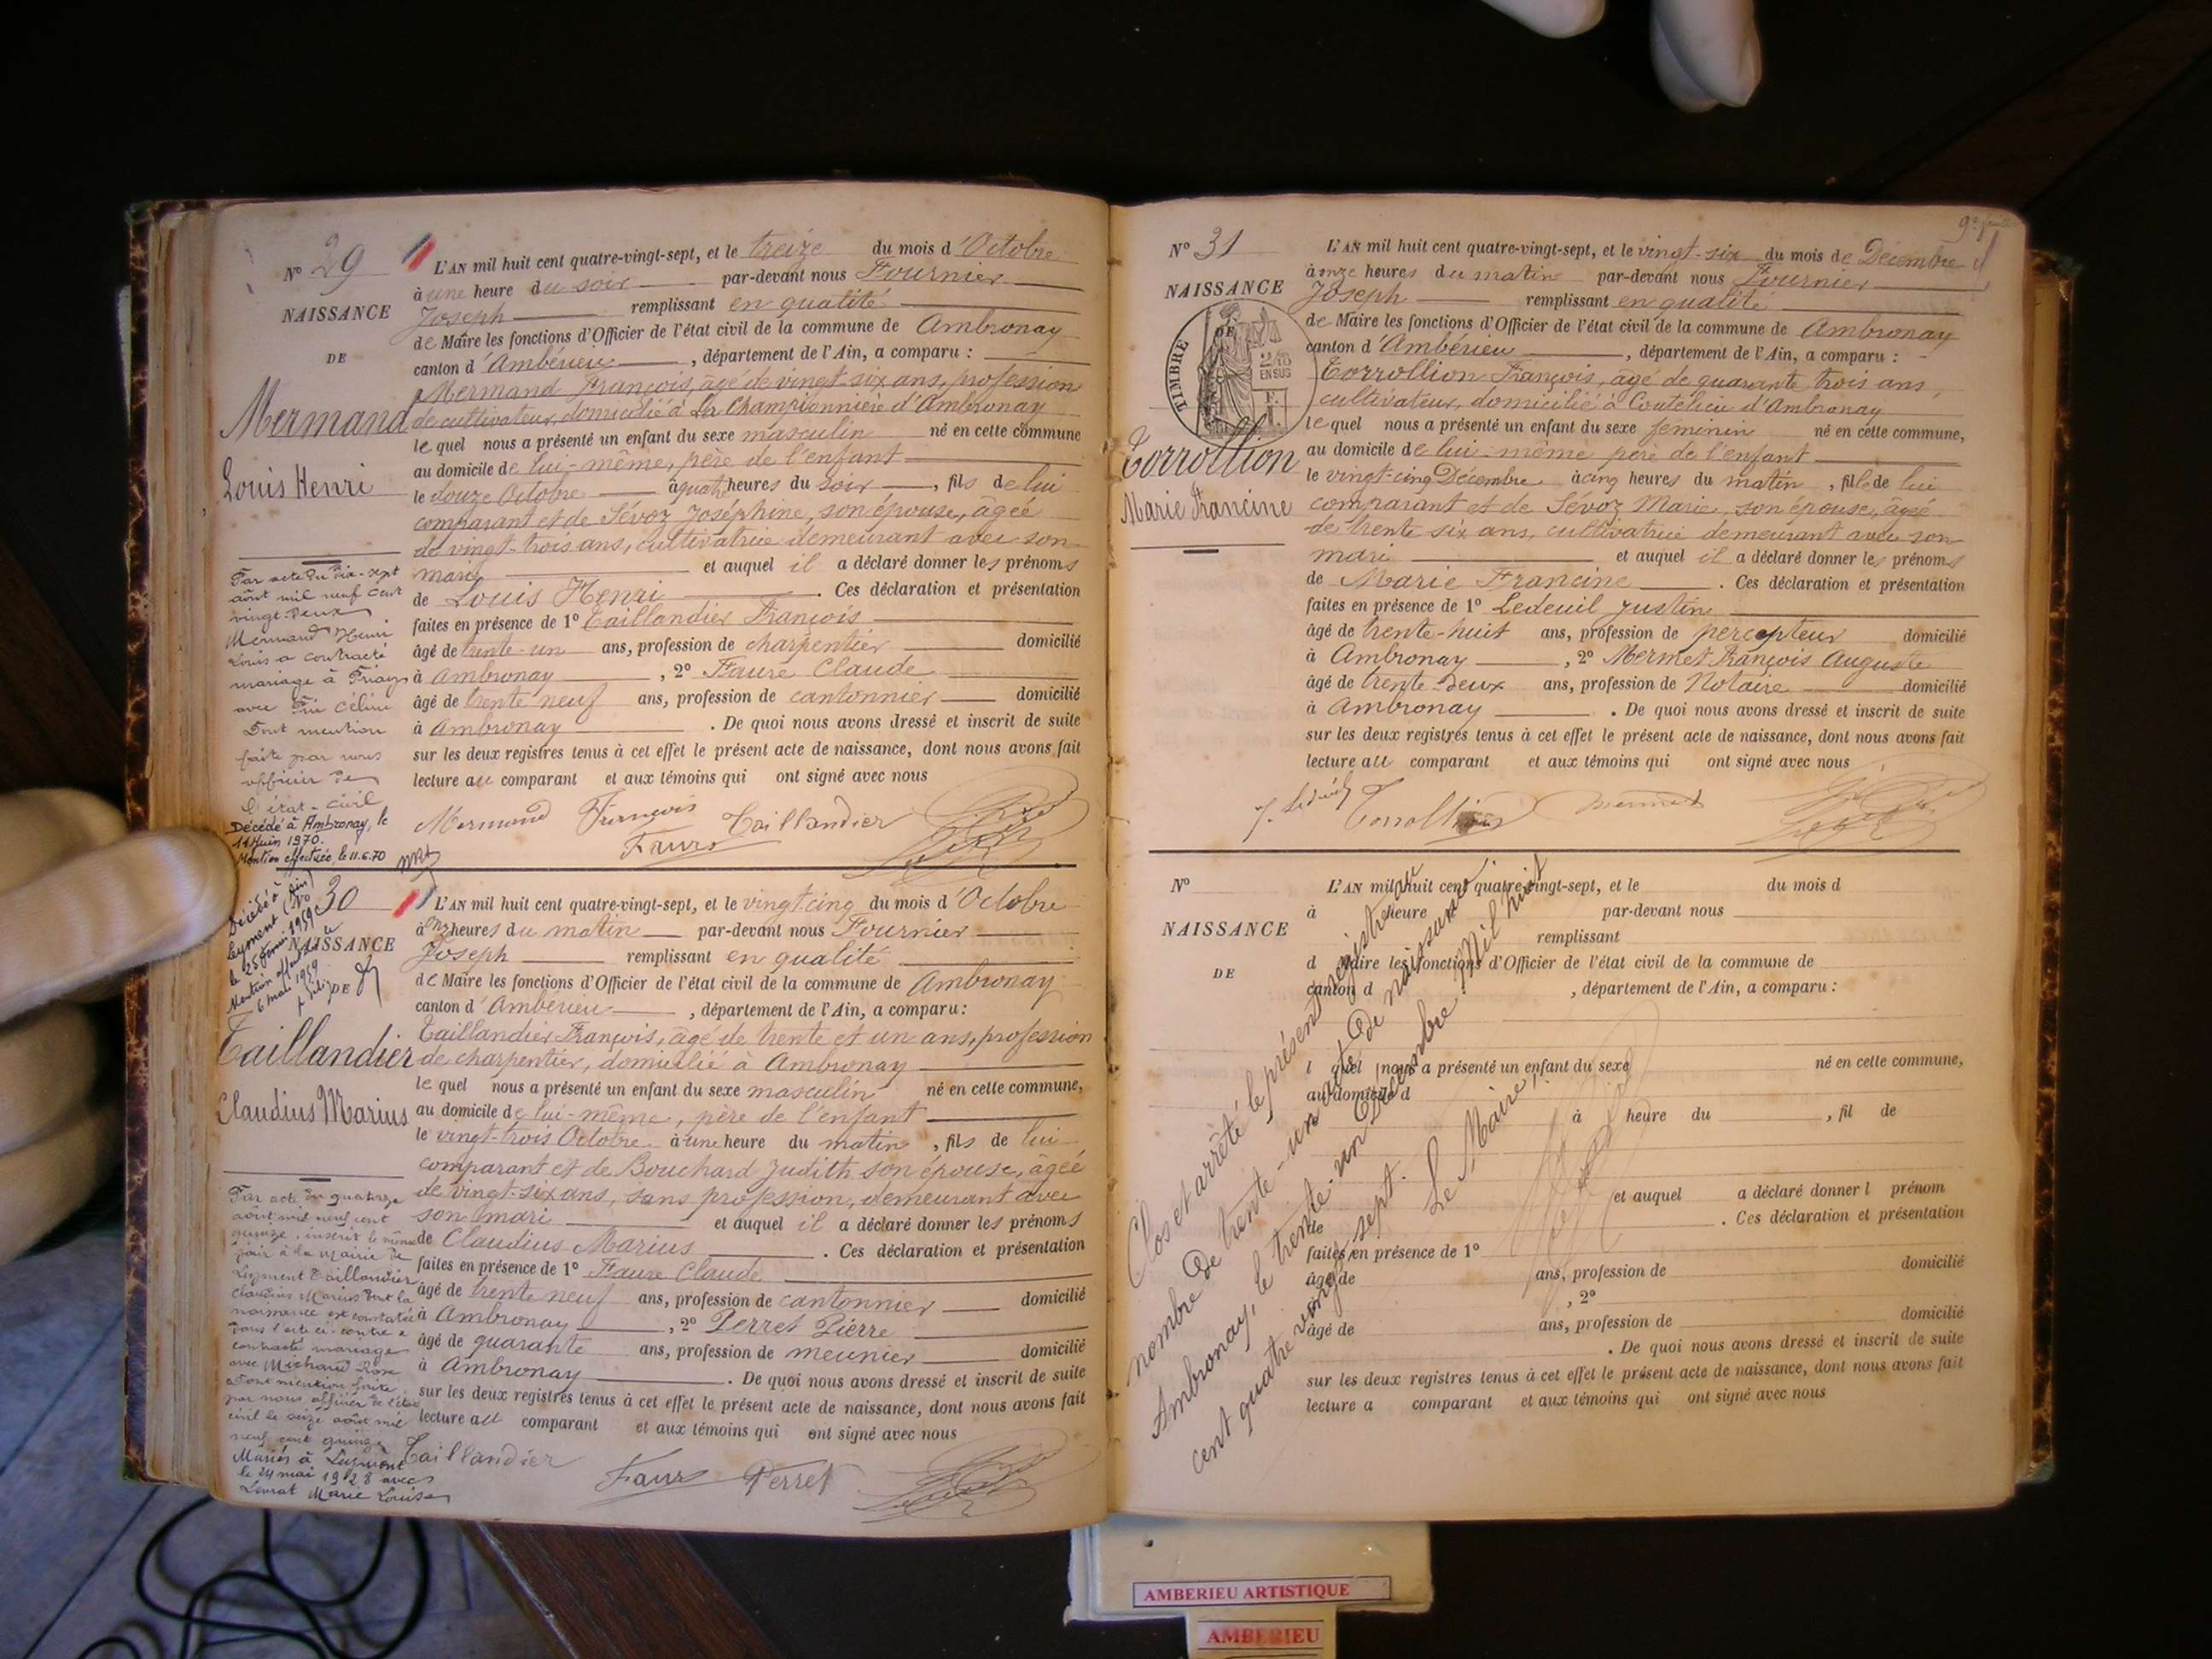 N° 29
NAISSANCE
DE
Mermand
Louis Henri
L'AN mil huit cent quatre-vingt-sept, et le treize du mois d'Octobre
à une heure du soir par-devant nous Fournier
Joseph remplissant en qualité
de Maire les fonctions d'Officier de l'état civil de la commune de Ambronay
canton d'Ambérieu, département de l'Ain, a comparu :
Mermand François, âgé de vingt-six ans, profession
de cultivateur, domicilié à La Championnière d'Ambronay
le quel nous a présenté un enfant du sexe masculin né en cette commune
au domicile de lui-même, père de l'enfant
le douze Octobre à quatre heures du soir, fils de lui
comparant et de Sévoz Joséphine, son épouse, âgée
de vingt-trois ans, cultivatrice demeurant avec son
mari et auquel il a déclaré donner les prénoms
de Louis Henri. Ces déclaration et présentation
faites en présence de 1° Taillandier François
âgé de trente-un ans, profession de charpentier domicilié
à Ambronay, 2° Faure Claude
âgé de trente neuf ans, profession de cantonnier domicilié
à Ambronay. De quoi nous avons dressé et inscrit de suite
sur les deux registres tenus à cet effet le présent acte de naissance, dont nous avons fait
lecture au comparant et aux témoins qui ont signé avec nous
Mermand François Taillandier
Faure
Par acte du dix-sept
août mil neuf cent
vingt-deux
Mermand Henri
Louis a contracté
mariage à Priay
avec Céline
Dont mention
faite par nous
officier de
l'état-civil
Décédé à Ambronay, le
Juin 1970.
Mention effectuée, le 11.6.70
N° 30
NAISSANCE
DE
Taillandier
Claudius Marius
Décédé à
Leyment (Ain)
le 25 février 1959
Mention effectuée le
6 mai 1959
L'AN mil huit cent quatre-vingt-sept, et le vingt cinq du mois d'Octobre
à onze heures du matin par-devant nous Fournier
Joseph remplissant en qualité
de Maire les fonctions d'Officier de l'état civil de la commune de Ambronay
canton d'Ambérieu, département de l'Ain, a comparu :
Taillandier François, âgé de trente et un ans, profession
de charpentier, domicilié à Ambronay
le quel nous a présenté un enfant du sexe masculin né en cette commune,
au domicile de lui-même, père de l'enfant
le vingt-trois Octobre à une heure du matin, fils de lui
comparant et de Bouchard Judith son épouse, âgée
de vingt-six ans, sans profession, demeurant avec
son mari et auquel il a déclaré donner les prénoms
de Claudius Marius. Ces déclaration et présentation
faites en présence de 1° Faure Claude
âgé de trente neuf ans, profession de cantonnier domicilié
à Ambronay, 2° Perret Pierre
âgé de quarante ans, profession de meunier domicilié
à Ambronay. De quoi nous avons dressé et inscrit de suite
sur les deux registres tenus à cet effet le présent acte de naissance, dont nous avons fait
lecture au comparant et aux témoins qui ont signé avec nous
Taillandier
Faure Perret
Par acte du quatorze
août mil neuf cent
quinze, inscrit le même
jour à la mairie de
Leyment Taillandier
Claudius Marius dont la
naissance est constatée
dans l'acte ci-contre a
contracté mariage
avec Michard Rose
Dont mention faite
par nous officier de l'état
civil le seize août mil
neuf cent quinze
Mariés à Leyment
le 24 mai 1928 avec
Levrat Marie Louise
N° 31
NAISSANCE
DE
TIMBRE
EN SUS
Torrollion
Marie Francine
L'AN mil huit cent quatre-vingt-sept, et le vingt-six du mois de Décembre
à onze heures du matin par-devant nous Fournier
Joseph remplissant en qualité
de Maire les fonctions d'Officier de l'état civil de la commune de Ambronay
canton d'Ambérieu, département de l'Ain, a comparu :
Torrollion François, âgé de quarante trois ans,
cultivateur, domicilié à Coutelieu d'Ambronay
le quel nous a présenté un enfant du sexe féminin né en cette commune,
au domicile de lui-même père de l'enfant
le vingt-cinq Décembre à cinq heures du matin, fille de lui
comparant et de Sévoz Marie, son épouse, âgée
de trente six ans, cultivatrice demeurant avec son
mari et auquel il a déclaré donner les prénoms
de Marie Francine. Ces déclaration et présentation
faites en présence de 1° Ledeuil Justin
âgé de trente-huit ans, profession de percepteur domicilié
à Ambronay, 2° Mermet François Auguste
âgé de trente-deux ans, profession de Notaire domicilié
à Ambronay. De quoi nous avons dressé et inscrit de suite
sur les deux registres tenus à cet effet le présent acte de naissance, dont nous avons fait
lecture au comparant et aux témoins qui ont signé avec nous
J. Ledeuil Torrollion Mermet
N°
NAISSANCE
DE
L'AN mil huit cent quatre-vingt-sept, et le du mois d
à heure par-devant nous
remplissant
d Maire les fonctions d'Officier de l'état civil de la commune de
canton d , département de l'Ain, a comparu :
l quel nous a présenté un enfant du sexe né en cette commune,
au domicile d
à heure du , fil de
et auquel a déclaré donner l prénom
de . Ces déclaration et présentation
faites en présence de 1°
âgé de ans, profession de domicilié
, 2°
âgé de ans, profession de domicilié
. De quoi nous avons dressé et inscrit de suite
sur les deux registres tenus à cet effet le présent acte de naissance, dont nous avons fait
lecture a comparant et aux témoins qui ont signé avec nous
Clos et arrêté le présent registre au
nombre de trente-un acte de naissance
Ambronay, le trente-un Décembre Mil huit
cent quatre vingt sept.
Le Maire,
AMBERIEU ARTISTIQUE
AMBERIEU